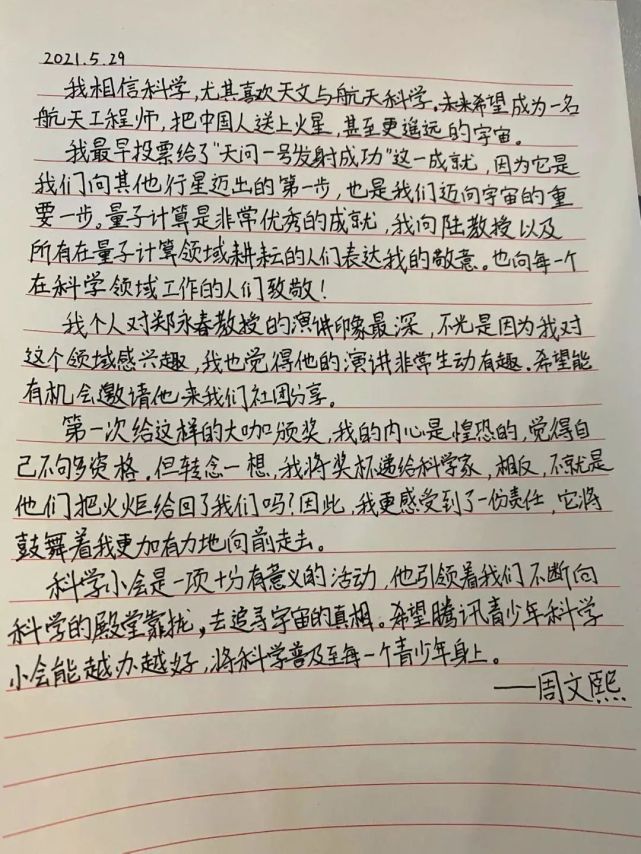 2021.5.29
我相信科学,尤其喜欢天文与航天科学。未来希望成为一名
航天工程师,把中国人送上火星,甚至更遥远的宇宙。
我最早投票给了"天问一号发射成功"这一成就,因为它是
我们向其他行星迈出的第一步,也是我们迈向宇宙的重
要一步。量子计算是非常优秀的成就,我向陆教授以及
所有在量子计算领域耕耘的人们表达我的敬意。也向每一个
在科学领域工作的人们致敬!
我个人对郑永春教授的演讲印象最深,不光是因为我对
这个领域感兴趣,我也觉得他的演讲非常生动有趣。希望能
有机会邀请他来我们社团分享。
第一次给这样的大咖颁奖,我的内心是惶恐的,觉得自
己不够资格。但转念一想,我将奖杯递给科学家,相反,不就是
他们把火炬给回了我们吗?因此,我更感受到了一份责任,它将
鼓舞着我更加有力地向前走去。
科学小会是一项十分有意义的活动,他引领着我们不断向
科学的殿堂靠拢,去追寻宇宙的真相。希望腾讯青少年科学
小会能越办越好,将科学普及至每一个青少年身上。
——周文熙